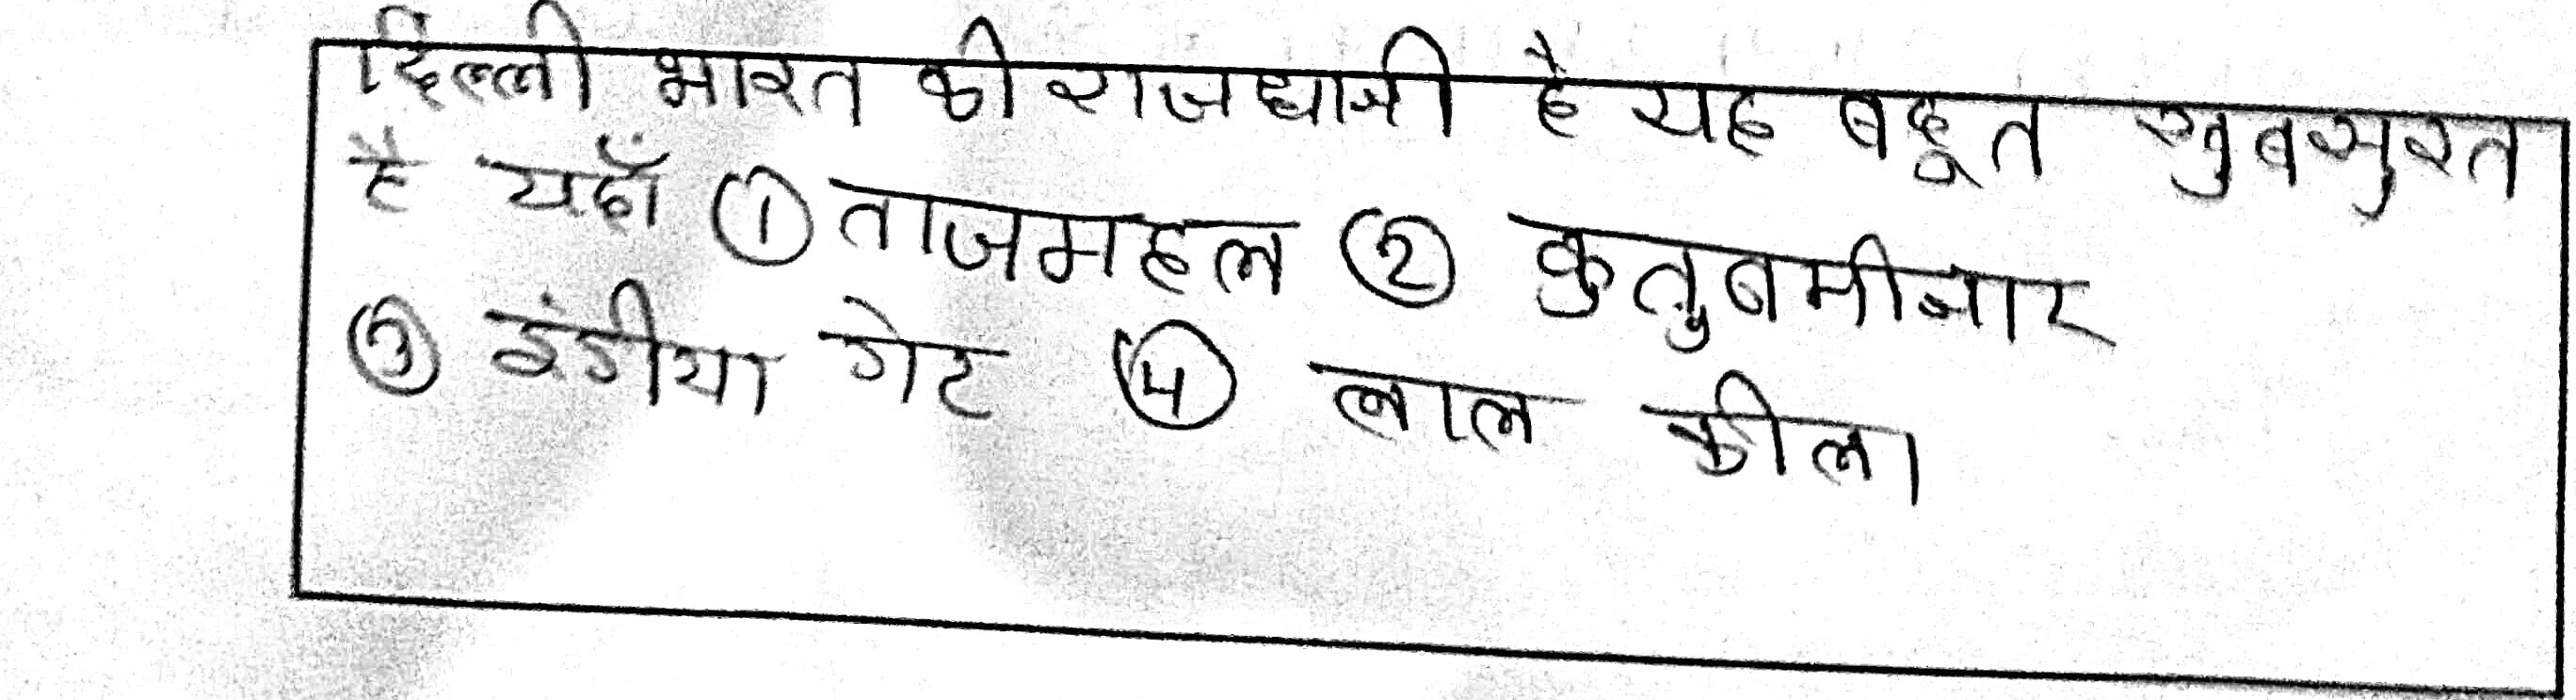 दिल्ली भारत की राजधानी है यह बहूत खुबसुरत
है यहाँ ① ताजमहल ② कुतुबमीनार
③ इंडीया गेट ④ लाल कीला